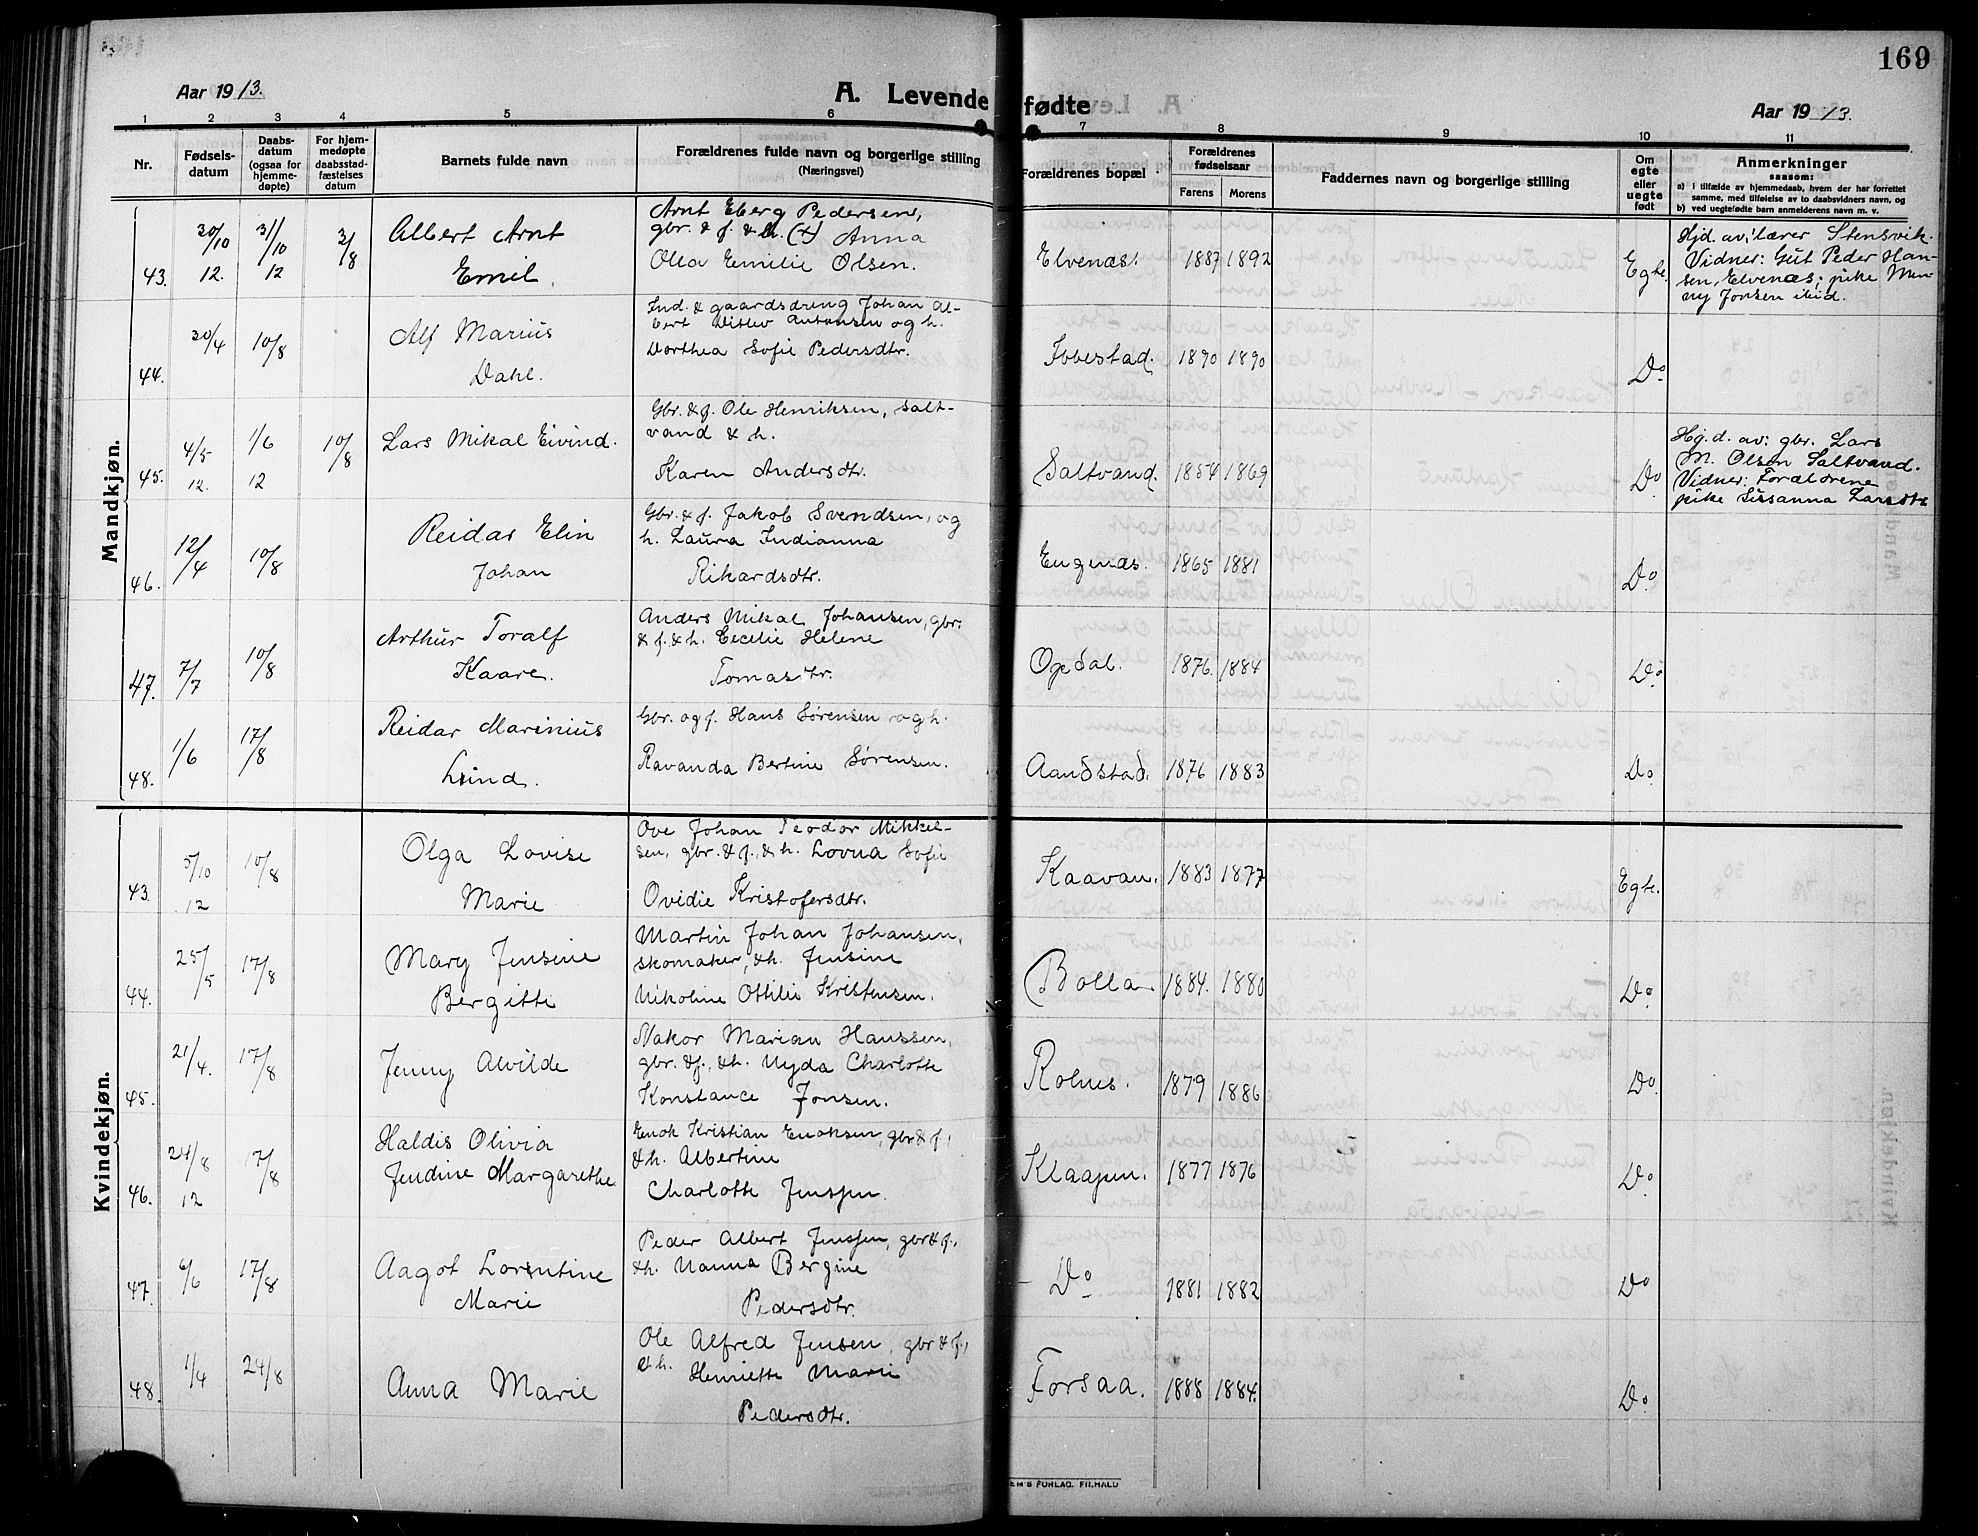 169
Aar 1913.
A. Levende fødte
Aar 1913.
1 2 3 4 5 6 7 8 9 10 11
Nr.
Fødsels-
datum
Daabs-
datum
(ogsaa for
hjemme-
døpte)
For hjem-
medøpte
daabsstad-
fæstelses
datum
Barnets fulde navn
Forældrenes fulde navn og borgerlige stilling
(Næringsvei)
Forældrenes bopæl
Forældrenes
fødselsaar
Farens Morens
Faddernes navn og borgerlige stilling
Om
egte
eller
uegte
født
Anmerkninger
saasom:
a) i tilfælde av hjemmedaab, hvem der har forrettet
samme, med tilføielse av to daabsvidners navn, og
b) ved uegtefødte barn anmelderens navn m. v.
Mandkjøn.
43. 30/10 12. 31/10 12 3/8
Albert Arnt
Emil.
Arnt Eberg Pedersen,
gbr. & f. & h. (x) Anna
Olea Emilie Olsen.
Elvenæs. 1887 1892 Egte.
Hjd. av: Lærer Stensvik.
Vidner: Gut Peder Han-
sen, Elvenæs; pike Mun-
ny Jonsen ibid.
44. 30/4 10/8
Alf Marius
Dahl.
Ind. & gaardsdreng Johan Al-
bert Ditlev Antonsen og h.
Dorthea Sofie Pedersdtr.
Ibbestad. 1890 1890 Do
45. 4/5 12. 1/6 12 10/8
Lars Mikal Eivind.
Gbr. & f. Ole Henriksen, Salt-
vand & h.
Karen Andersdtr.
Saltvand. 1854 1869 Do
Hj.d. av: gbr. Lars
M. Olsen Saltvand.
Vidner: Forældrene
pike Susanna Larsdtr
46. 12/4 10/8
Reidar Elin
Johan
Gbr. & f. Jakob Svendsen, og
h. Laura Indianna
Rikardsdtr.
Engenæs. 1865 1881 Do
47. 7/7 10/8
Arthur Toralf
Kaare.
Anders Mikal Johansen, gbr.
& f. & h. Cecilie Helene
Tomasdtr.
Opdal. 1876. 1884 Do
48. 1/6 17/8
Reidar Marinius
Lind.
Gbr. og f. Hans Sørensen og h.
Ravanda Bertine Sørensen.
Aandstad. 1876 1883 Do
Kvindekjøn.
43. 5/10 12 10/8
Olga Lovise
Marie
Ove Johan Teodor Mikkel-
sen, gbr. & f., & h. Lovna Sofie
Ovidie Kristofersdtr.
Kaavan. 1883 1877 Egte.
44. 25/5 17/8
Mary Jensine
Bergitte
Martin Johan Johansen,
skomaker, & h. Jensine
Nikoline Ottilie Kristensen.
Bolla 1884. 1880 Do
45. 21/4. 17/8
Jenny Alvilde
Nakor Marian Hanssen,
gbr. & f., & h. Nyda Charlotte
Konstance Jonsen.
Rolnes. 1879 1886 Do
46. 24/8 12 17/8
Haldis Olivia
Jendine Margarethe
Enok Kristian Enoksen, gbr & f,
& h. Albertine
Charlotte Jenssen.
Klaapen. 1877 1876 Do
47. 6/6 17/8
Aagot Lorentine
Marie
Peder Albert Jenssen, gbr & f.,
& h. Nanna Bergine
Pedersdtr.
Do 1881 1882 Do
48. 1/4 24/8
Anna Marie
Ole Alfred Jensen, gbr & f.,
& h. Henriette Marie
Pedersdtr.
Forsaa. 1888 1884. Do
FORLAG. FR.HALD